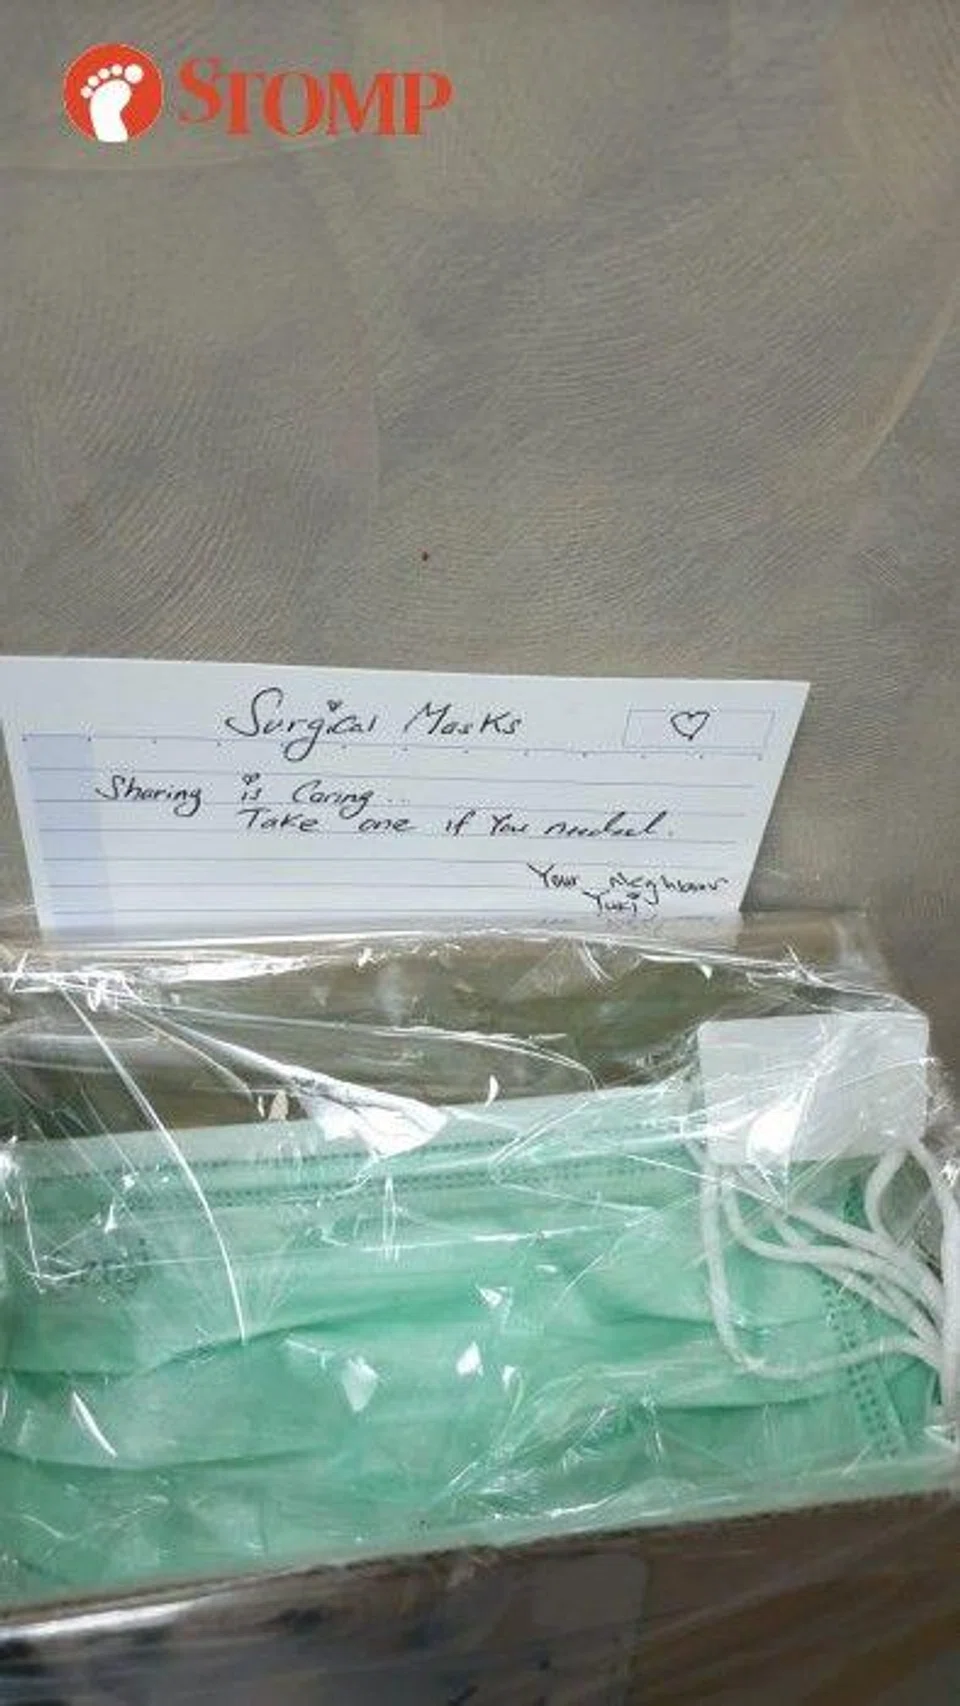 STOMP
Surgical Masks
Sharing is Caring...
Take one if You needed.
Your Neghbour
Yuki